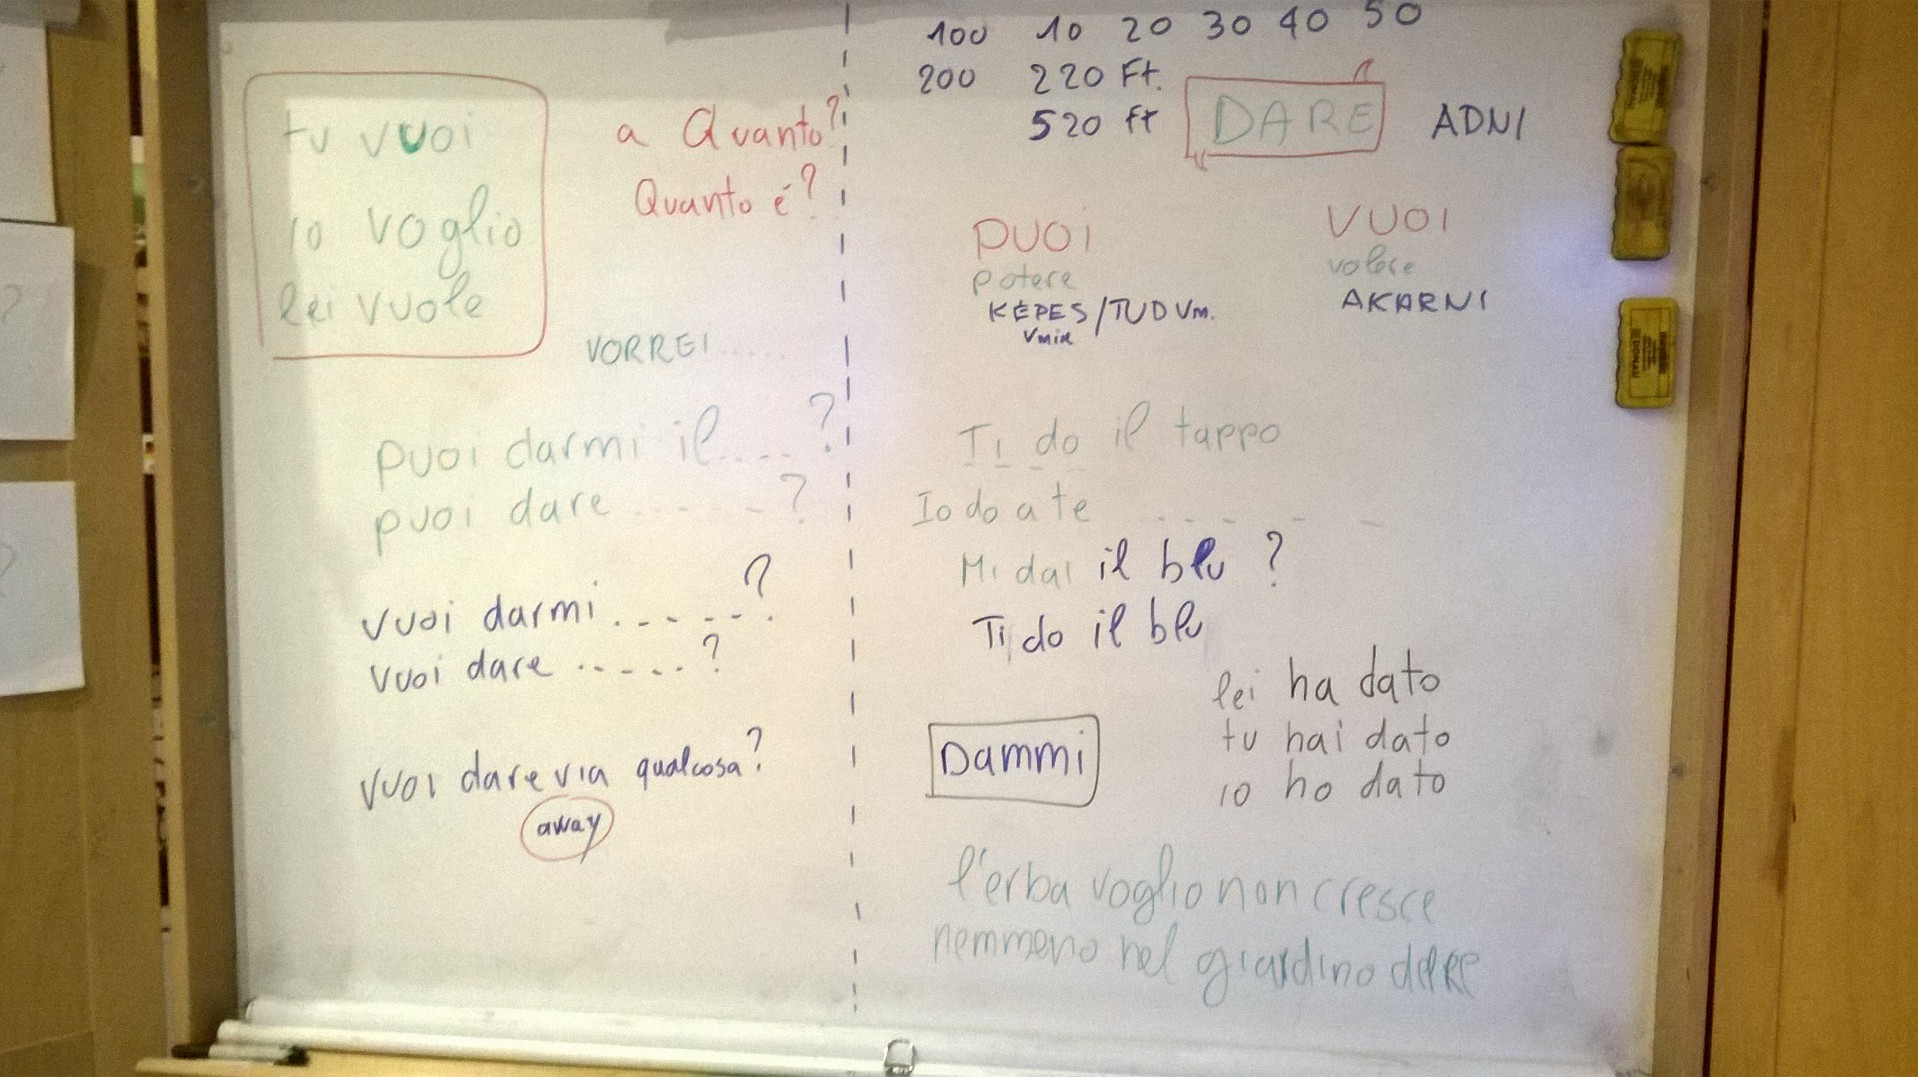 tu vuoi
io voglio
lei vuole
a Quanto?
Quanto é?
VORREI.....
puoi darmi il.....?
puoi dare ......?
vuoi darmi ......?
vuoi dare ......?
vuoi dare via qualcosa?
away
100 10 20 30 40 50
200 220 Ft.
520 ft
DARE
ADNI
PUOI
potere
KÉPES/TUD Vm.
Vmin
VUOI
volere
AKARNI
Ti do il tappo
Io do a te ......
Mi dai il blu ?
Ti do il blu
lei ha dato
tu hai dato
io ho dato
Dammi
l'erba voglio non cresce
nemmeno nel giardino del RE